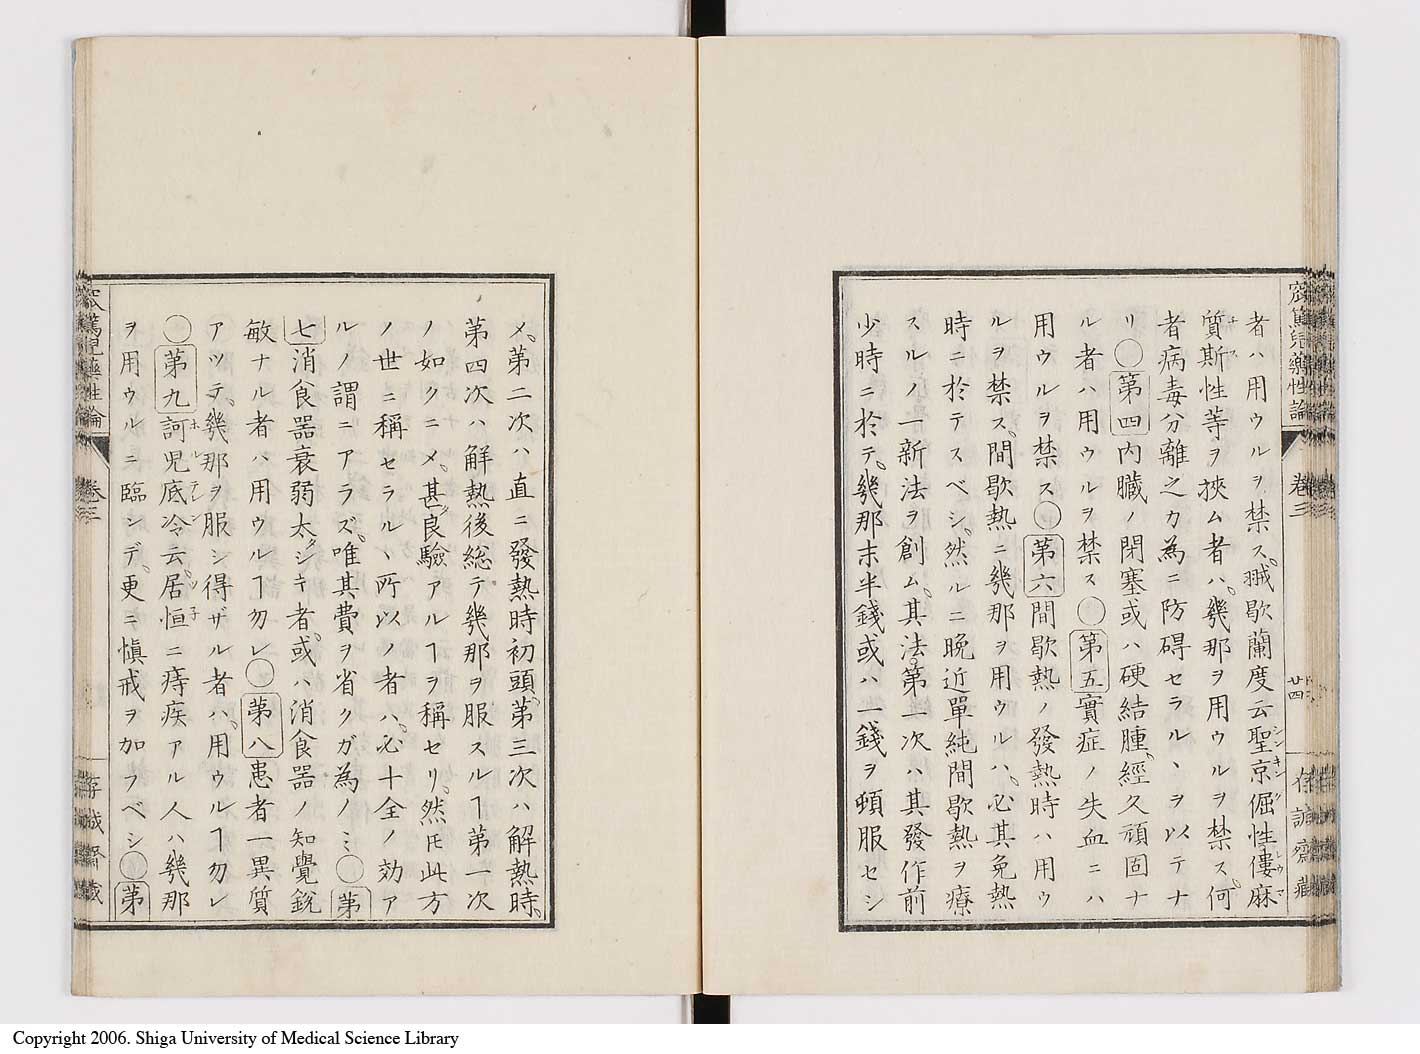 窊篤児藥性論 卷三 廿四 存誠齋藏
者ハ用ウルヲ禁ス。蜮歇蘭度云聖京倔性僂麻
質斯性等ヲ挾ム者ハ、幾那ヲ用ウルヲ禁ス。何
者病毒分離之カ為ニ防碍セラル、ヲ以テナ
リ○第四内臟ノ閉塞或ハ硬結腫、經久頑固ナ
ル者ハ用ウルヲ禁ス○第五實症ノ失血ニハ
用ウルヲ禁ス○第六間歇熱ノ發熱時ハ用ウ
ルヲ禁ス。間歇熱ニ幾那ヲ用ウルハ、必其免熱
時ニ於テスベシ。然ルニ晩近單純間歇熱ヲ療
スルノ一新法ヲ創ム。其法第一次ハ其發作前
少時ニ於テ、幾那末半錢或ハ一錢ヲ頓服セシ
メ、第二次ハ直ニ發熱時初頭、第三次ハ解熱時、
第四次ハ解熱後総テ幾那ヲ服スルヿ第一次
ノ如クニメ、甚良驗アルヿヲ稱セリ。然𪜈此方
ノ世ニ稱セラル、所以ノ者ハ、必十全ノ効ア
ルノ謂ニアラズ、唯其費ヲ省クガ為ノミ○第
七消食器衰弱太シキ者、或ハ消食器ノ知覺銳
敏ナル者ハ用ウルヿ勿レ○第八患者一異質
アツテ、幾那ヲ服シ得ザル者ハ、用ウルヿ勿レ
○第九訶児底冷云、居恒ニ痔疾アル人ハ幾那
ヲ用ウルニ臨ンデ、更ニ愼戒ヲ加フベシ○第
Copyright 2006. Shiga University of Medical Science Library